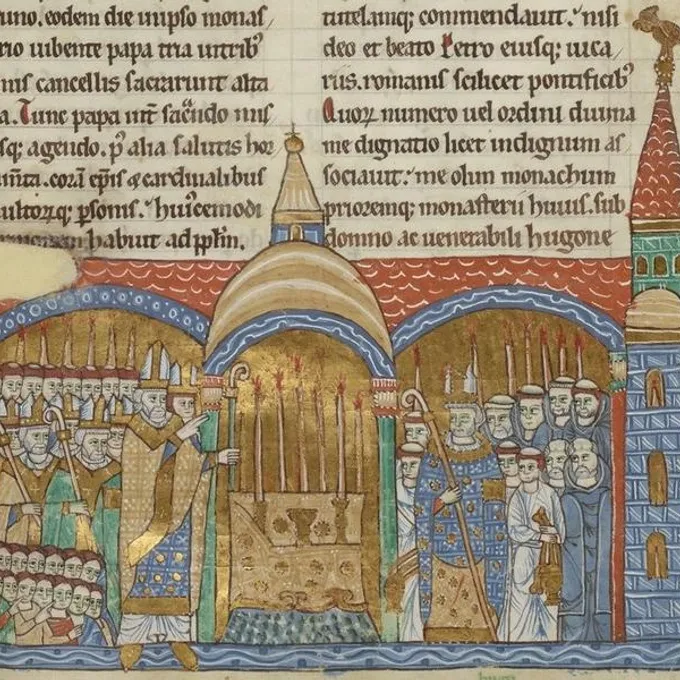 uno. eodem die in ipso monas
rio iubente papa tria in tribꝰ
mis cancellis sacrarunt alta
a. Tunc papa int̄ sac̄ndo mis
sq; agendo. p̾ alia salutis hor
m̄ta. corā ep̄is & cardinalibus
ultorꝝq; p̄sonis. huiꝰcemodi
habuit ad pp̄lm.
tutelamq; commendauit. nisi
deo et beato Petro eiusq; uica
riis. romanis scilicet pontificibꝰ
Quoꝝ numero uel ordini diuina
me dignatio licet indignum as
sociauit. me olim monachum
prioremq; monasterii huius. sub
domno ac uenerabili hugone